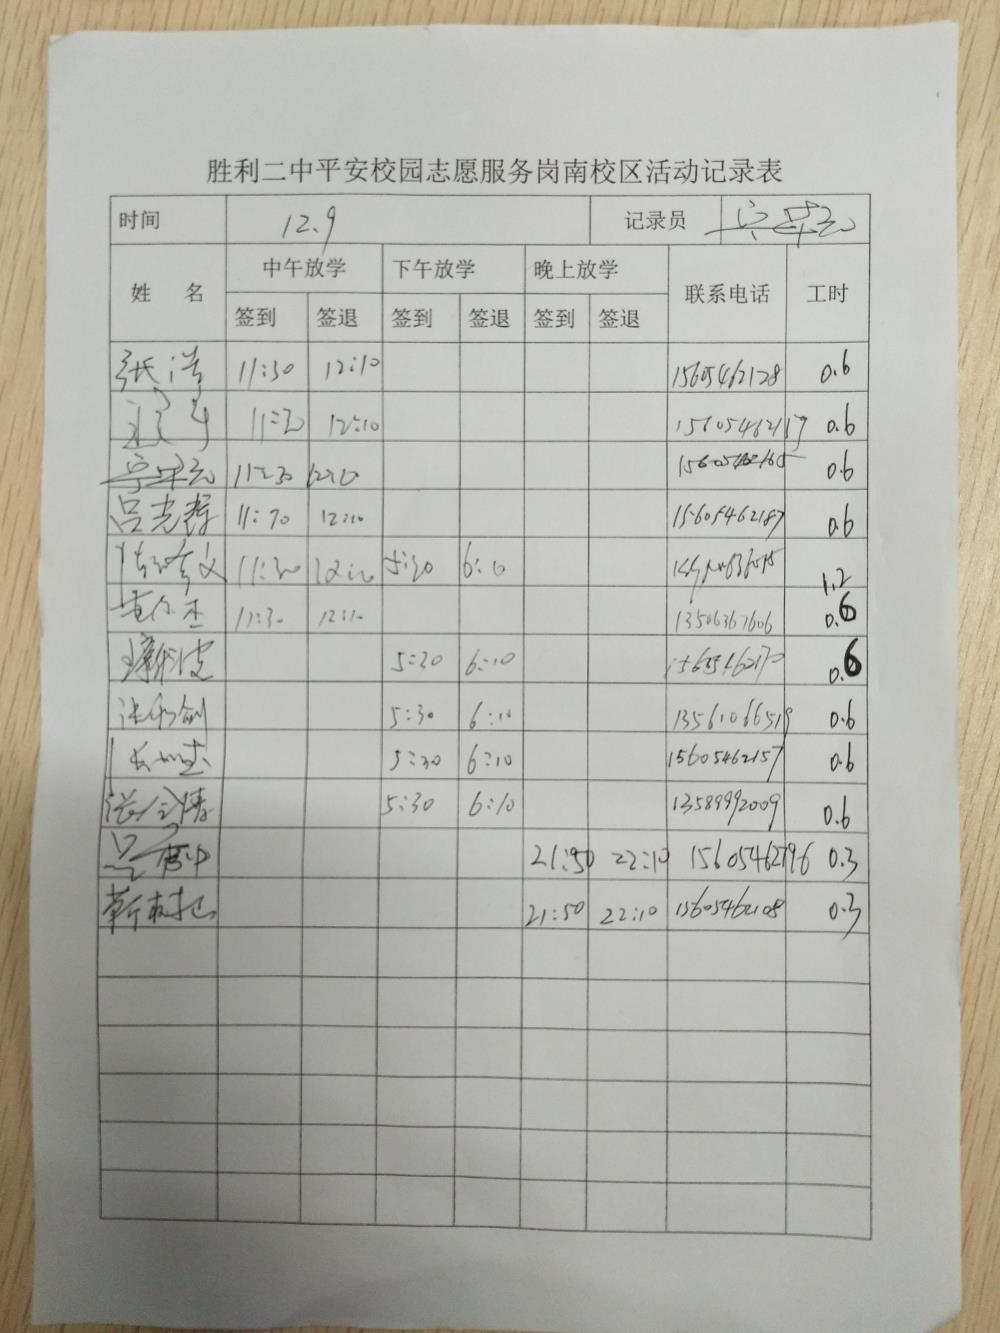 胜利二中平安校园志愿服务岗南校区活动记录表
时间 12.9 记录员
姓 名 中午放学 下午放学 晚上放学 联系电话 工时
签到 签退 签到 签退 签到 签退
张浩 11:30 12:10 15605462128 0.6
11:30 12:10 15605462117 0.6
11:30 12:10 15605462165 0.6
吕光辉 11:30 12:10 15605462187 0.6
11:30 12:10 5:30 6:10 1.2
11:30 12:10 13506367606 0.6
5:30 6:10 15605462170 0.6
5:30 6:10 13561066519 0.6
5:30 6:10 15605462157 0.6
张金涛 5:30 6:10 13589992009 0.6
21:50 22:10 15605462796 0.3
21:50 22:10 15605462108 0.3